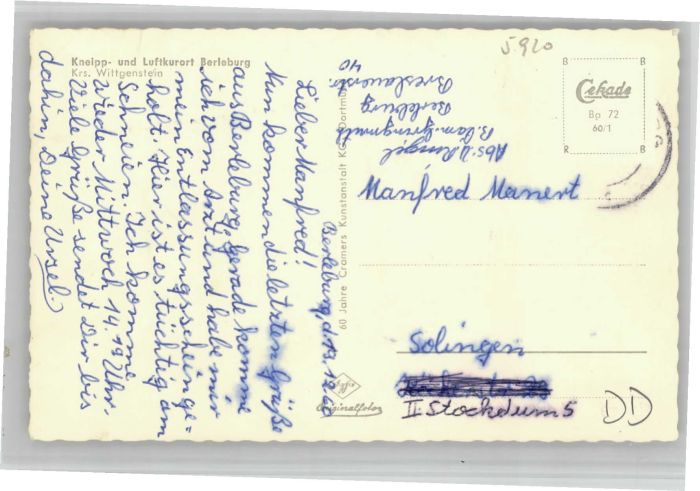 5.920
Kneipp- und Luftkurort Berleburg
Krs. Wittgenstein
Berleburg, d. 19.1.1960
Lieber Manfred!
Nun kommen die letzten Grüße
aus Berleburg. Gerade komme
ich vom Arzt und habe mir
mein Entlassungsschein ge=
holt. Hier ist es tüchtig am
Schneien. Ich komme
wieder Mittwoch 14.19 Uhr.
Viele Grüße sendet Dir bis
dahin, Deine Ursel.
60 Jahre Cramers Kunstanstalt KG, Dortmund
Originalfoto
Abs: U.
Berleburg
Breslauerstr.
40
Cekade
Bg 72
60/1
B B
R R
Manfred Manert
Solingen
II. Stockdum 5
DD